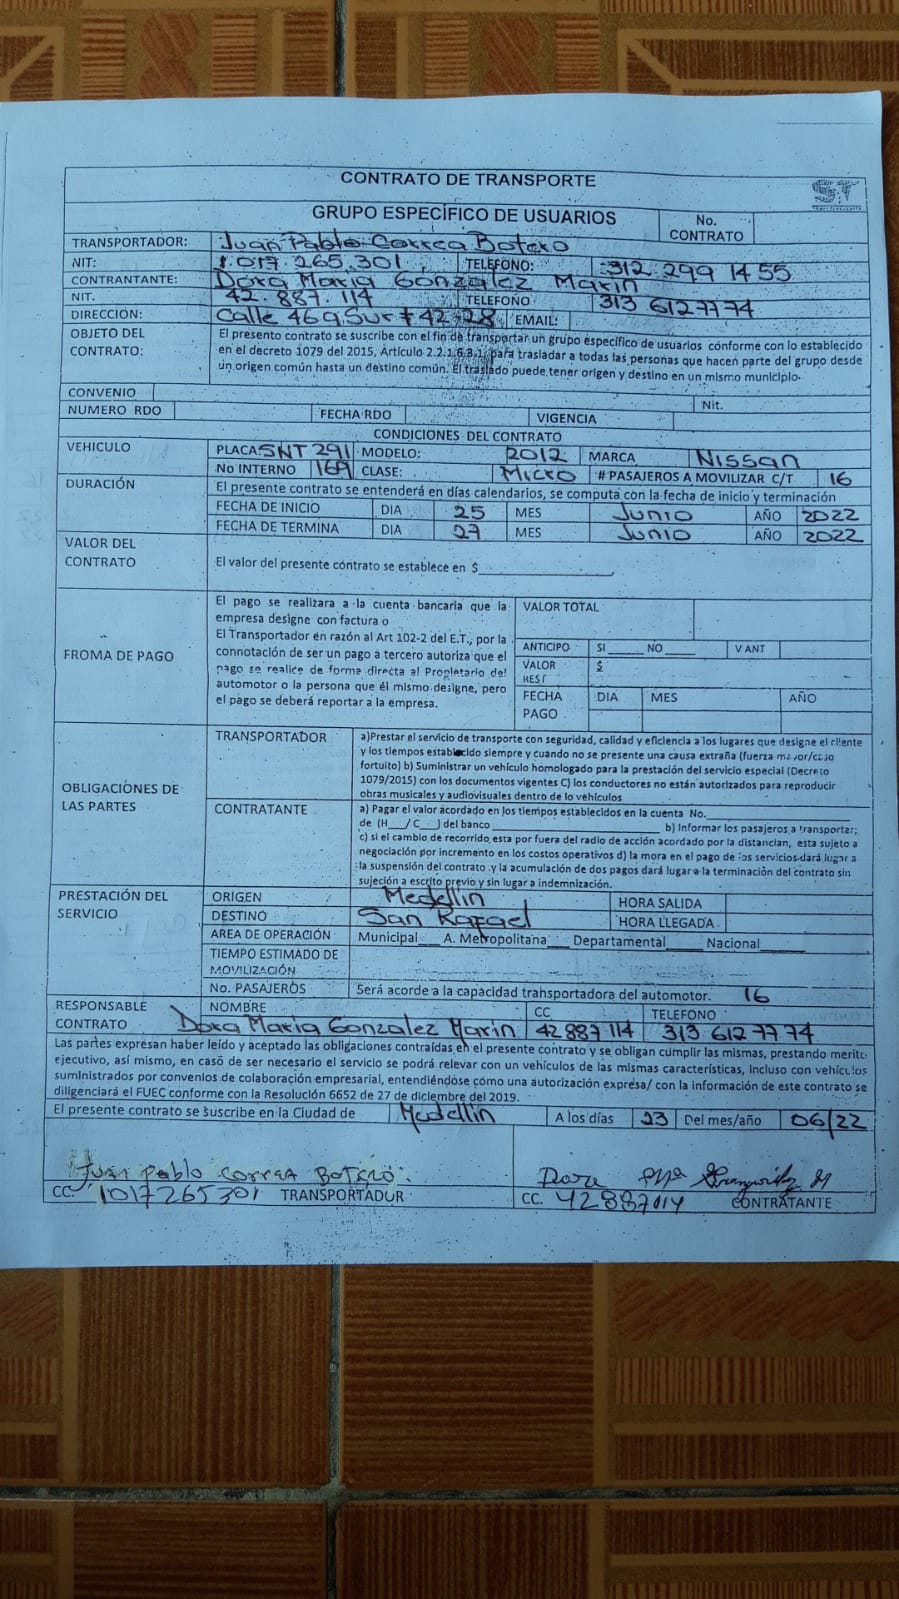 CONTRATO DE TRANSPORTE
GRUPO ESPECÍFICO DE USUARIOS No. CONTRATO
TRANSPORTADOR: Juan Pablo Correa Botero
NIT: 1.017.265.301 TELEFONO: 312 299 14 55
CONTRANTANTE: Dora Maria Gonzalez Marin
NIT. 42.887 114 TELEFONO 313 612 77 74
DIRECCIÓN: Calle 46q Sur # 42-28 EMAIL:
OBJETO DEL CONTRATO: El presente contrato se suscribe con el fin de transportar un grupo específico de usuarios conforme con lo establecido
en el decreto 1079 del 2015, Artículo 2.2.1.6.3.1, para trasladar a todas las personas que hacen parte del grupo desde
un origen común hasta un destino común. El traslado puede tener origen y destino en un mismo municipio.
CONVENIO Nit.
NUMERO RDO FECHA RDO VIGENCIA
CONDICIONES DEL CONTRATO
VEHICULO PLACA SNT 291 MODELO: 2012 MARCA Nissan
No INTERNO 169 CLASE: Micro # PASAJEROS A MOVILIZAR C/T 16
DURACIÓN El presente contrato se entenderá en días calendarios, se computa con la fecha de inicio y terminación
FECHA DE INICIO DIA 25 MES Junio AÑO 2022
FECHA DE TERMINA DIA 27 MES Junio AÑO 2022
VALOR DEL CONTRATO El valor del presente contrato se establece en $
FROMA DE PAGO
El pago se realizara a la cuenta bancaria que la
empresa designe con factura o
El Transportador en razón al Art 102-2 del E.T., por la
connotación de ser un pago a tercero autoriza que el
pago se realice de forma directa al Propietario del
automotor o la persona que él mismo designe, pero
el pago se deberá reportar a la empresa.
VALOR TOTAL
ANTICIPO SI NO V ANT
VALOR REST $
FECHA PAGO DIA MES AÑO
OBLIGACIÓNES DE LAS PARTES
TRANSPORTADOR a)Prestar el servicio de transporte con seguridad, calidad y eficiencia a los lugares que designe el cliente
y los tiempos establecido siempre y cuando no se presente una causa extraña (fuerza mayor/caso
fortuito) b) Suministrar un vehículo homologado para la prestación del servicio especial (Decreto
1079/2015) con los documentos vigentes C) los conductores no están autorizados para reproducir
obras musicales y audiovisuales dentro de lo vehículos
CONTRATANTE a) Pagar el valor acordado en los tiempos establecidos en la cuenta No.
de (H___/ C___) del banco b) Informar los pasajeros a transportar;
c) si el cambio de recorrido esta por fuera del radio de acción acordado por la distancian, esta sujeto a
negociación por incremento en los costos operativos d) la mora en el pago de los servicios dará lugar a
la suspensión del contrato y la acumulación de dos pagos dará lugar a la terminación del contrato sin
sujeción a escrito previo y sin lugar a indemnización.
PRESTACIÓN DEL SERVICIO
ORIGEN Medellin HORA SALIDA
DESTINO San Rafael HORA LLEGADA
AREA DE OPERACIÓN Municipal___ A. Metropolitana___ Departamental_____ Nacional______
TIEMPO ESTIMADO DE MOVILIZACIÓN
No. PASAJEROS Será acorde a la capacidad transportadora del automotor. 16
RESPONSABLE CONTRATO NOMBRE CC TELEFONO
Dora Maria Gonzalez Marin 42 887 114 313 612 77 74
Las partes expresan haber leído y aceptado las obligaciones contraídas en el presente contrato y se obligan cumplir las mismas, prestando merito
ejecutivo, así mismo, en casó de ser necesario el servicio se podrá relevar con un vehículos de las mismas características, incluso con vehículos
suministrados por convenios de colaboración empresarial, entendiéndose como una autorización expresa/ con la información de este contrato se
diligenciará el FUEC conforme con la Resolución 6652 de 27 de diciembre del 2019.
El presente contrato se suscribe en la Ciudad de Medellin A los días 23 Del mes/año 06/22
Juan Pablo Correa Botero. Dora
CC. 1017265301 TRANSPORTADOR CC. CONTRATANTE